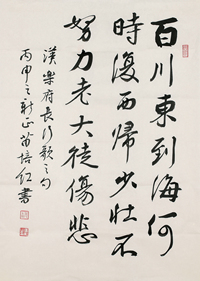 百川東到海何
時復西歸少壯不
努力老大徒傷悲
漢樂府長行歌之句
丙申之新正苗培紅書